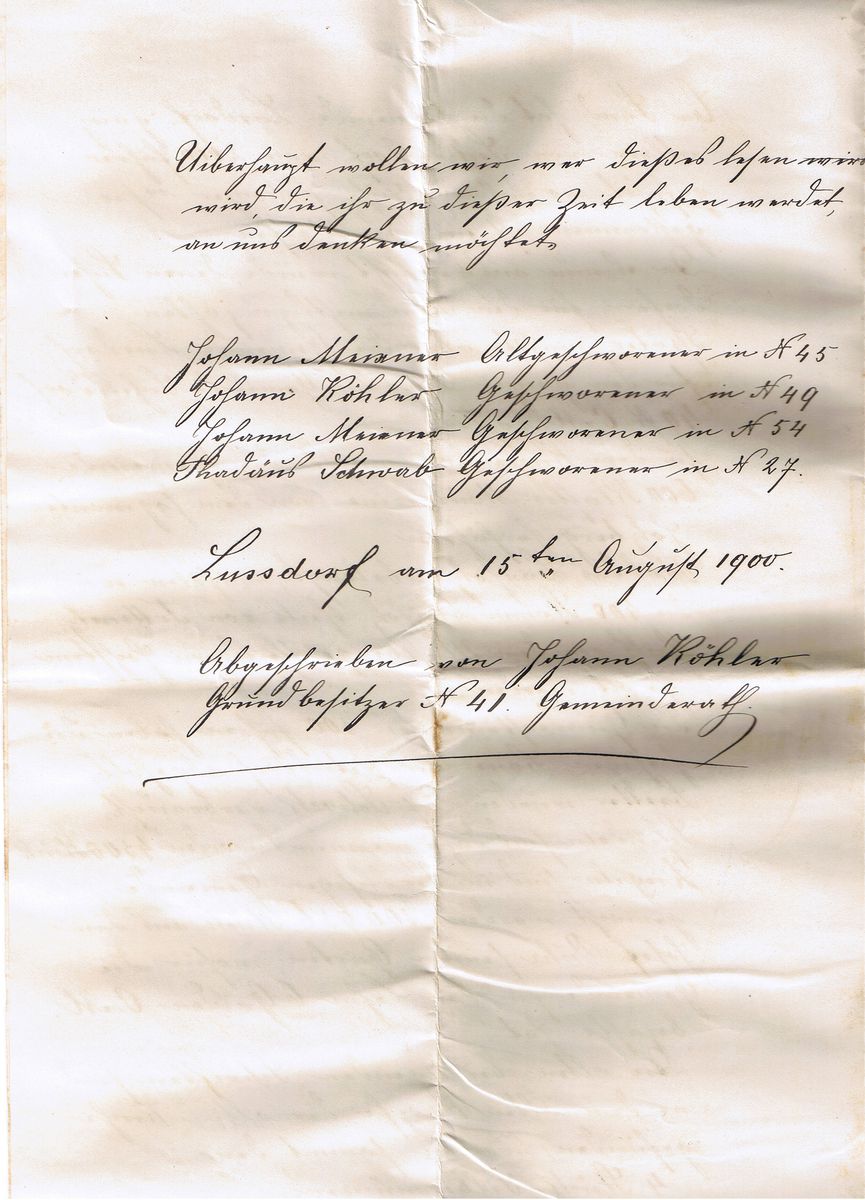 Uiberhaupt wollen wir, wer dießes lesen wird
wird, die ihr zu dießer Zeit leben werdet,
an uns denken möchtet.
Johann Meixner Altgeschworener in N 45
Johann Köhler Geschworener in N 49
Johann Meixner Geschworener in N 54
Thadäus Schwab Geschworener in N 27.
Lussdorf am 15ten August 1900.
Abgeschrieben von Johann Köhler
Grundbesitzer N 41. Gemeinderath.